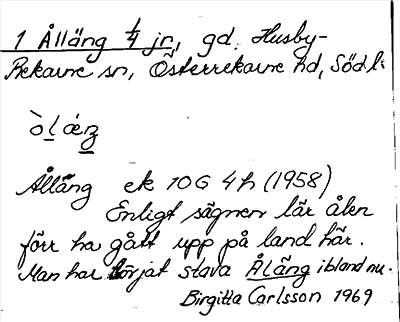 1 Ålläng 1/4 jr, gd. Husby-
Rekarne sn, Österrekarne hd, Södl.
òlǽŋ
Ålläng ek 10G 4h (1958)
Enligt sägnen lär ålen
förr ha gått upp på land här.
Man har börjat stava Åläng ibland nu.
Birgitta Carlsson 1969